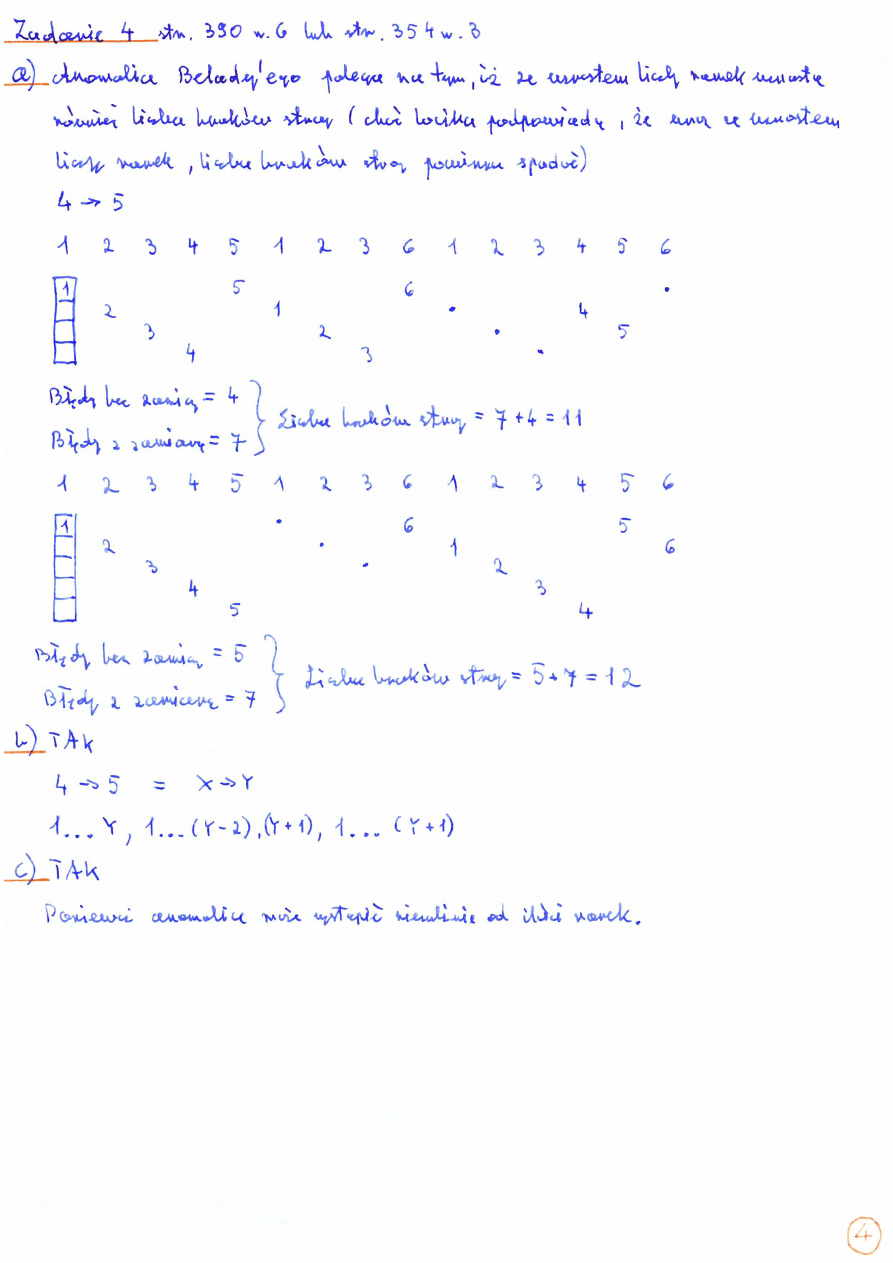 Zadanie 4 str. 390 w. 6 lub str. 354 w. 3
a) Anomalia Belady'ego polega na tym, iż ze wzrostem liczby ramek wzrasta
również liczba braków stron (choć logika podpowiada, że wraz ze wzrostem
liczby ramek, liczba braków stron powinna spadać)
4 → 5
1 2 3 4 5 1 2 3 6 1 2 3 4 5 6
1 5 6 •
2 1 • 4
3 2 • 5
4 3 •
Błędy bez zamiany = 4
Liczba braków strony = 7 + 4 = 11
Błędy z zamianą = 7
1 2 3 4 5 1 2 3 6 1 2 3 4 5 6
1 • 6 5
2 • 1 6
3 • 2
4 3
5 4
Błędy bez zamiany = 5
Liczba braków strony = 5 + 7 = 12
Błędy z zamianą = 7
b) TAK
4 → 5 = X → Y
1... Y, 1... (Y-2), (Y+1), 1... (Y+1)
c) TAK
Ponieważ anomalia może wystąpić niezależnie od ilości ramek.
4